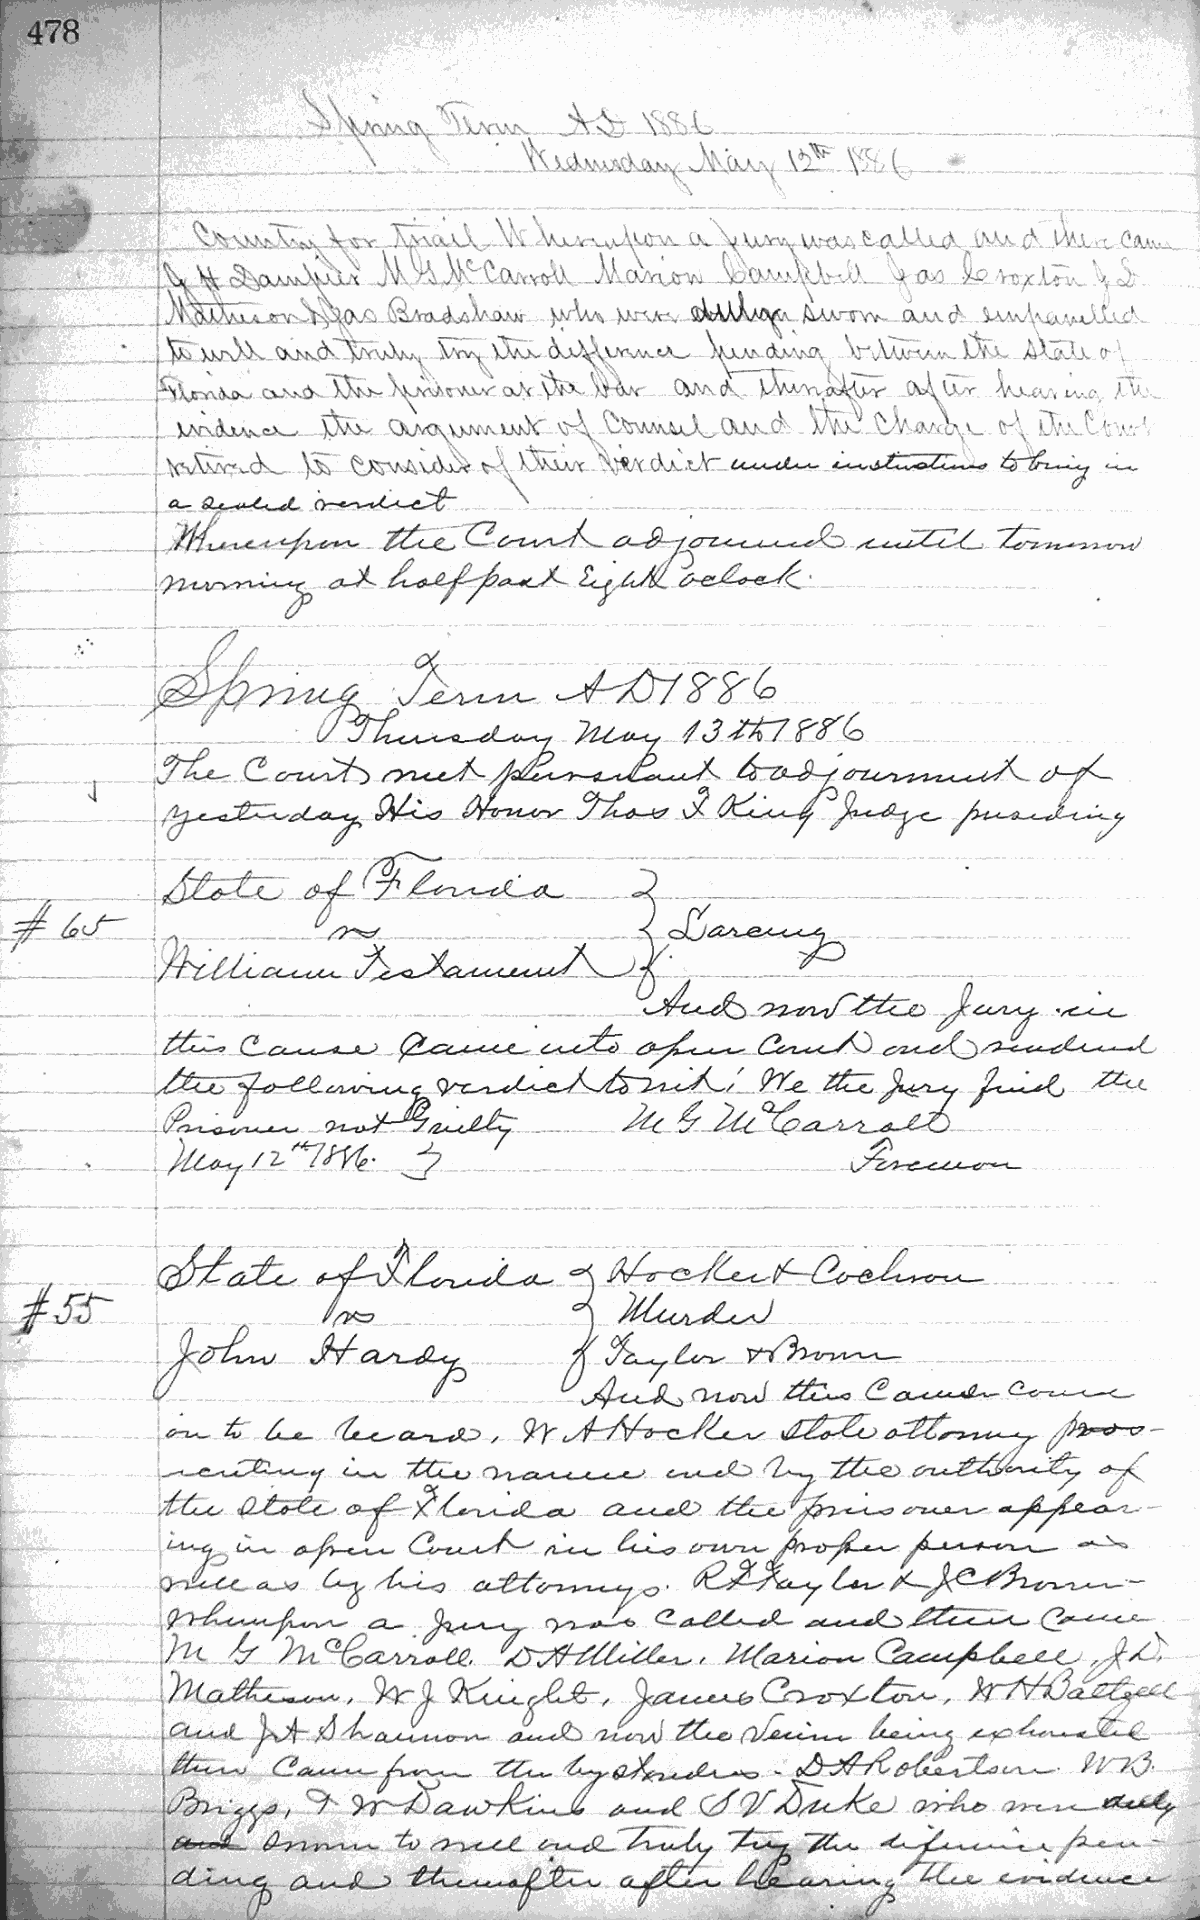 478
Spring Term AD 1886
Wednesday May 12th 1886
Country for trail Whereupon a Jury was called and there came
J H Dampier M G McCarroll Marion Campbell Jas Croxton J D
Matheson & Jas Bradshaw who were duly sworn and empanelled
to well and truly try the difference pending between the State of
Florida and the prisoner at the bar and thereafter after hearing the
evidence the argument of Counsel and the Charge of the Court
retired to consider of their verdict under instructions to bring in
a sealed verdict
Whereupon the Court adjourned until tomorrow
morning at half past Eight oclock.
Spring Term AD 1886
Thursday May 13th 1886
The Court met pursuant to adjournment of
yesterday His Honor Thos F King Judge presiding
State of Florida
#65 vs Larceny
William Testament
And now the Jury in
this Cause Came into open Court and rendered
the following verdict to wit! We the Jury find the
Prisoner not Guilty M G McCarroll
May 12th 1886. Foreman
State of Florida Hocker & Cochran
#55 vs Murder
John Hardy Taylor & Brown
And now this Cause come
on to be heard, W A Hocker State attorney pros-
ecuting in the name and by the authority of
the State of Florida and the prisoner appear-
ing in open Court in his own proper person as
well as by his attorneys. R F Taylor & J C Brown-
Whereupon a jury was called and there came
M G McCarroll. D H Miller, Marion Campbell, J D.
Matheson, W J Knight, James Croxton, W H Baltzell
and J A Shannon and now the Venire being exhausted
there Came from the bystanders - D A Robertson W B.
Briggs, F W Dawkins and S V Duke who were duly
and sworn to well and truly try the diference pen-
ding and thereafter after hearing the evidence